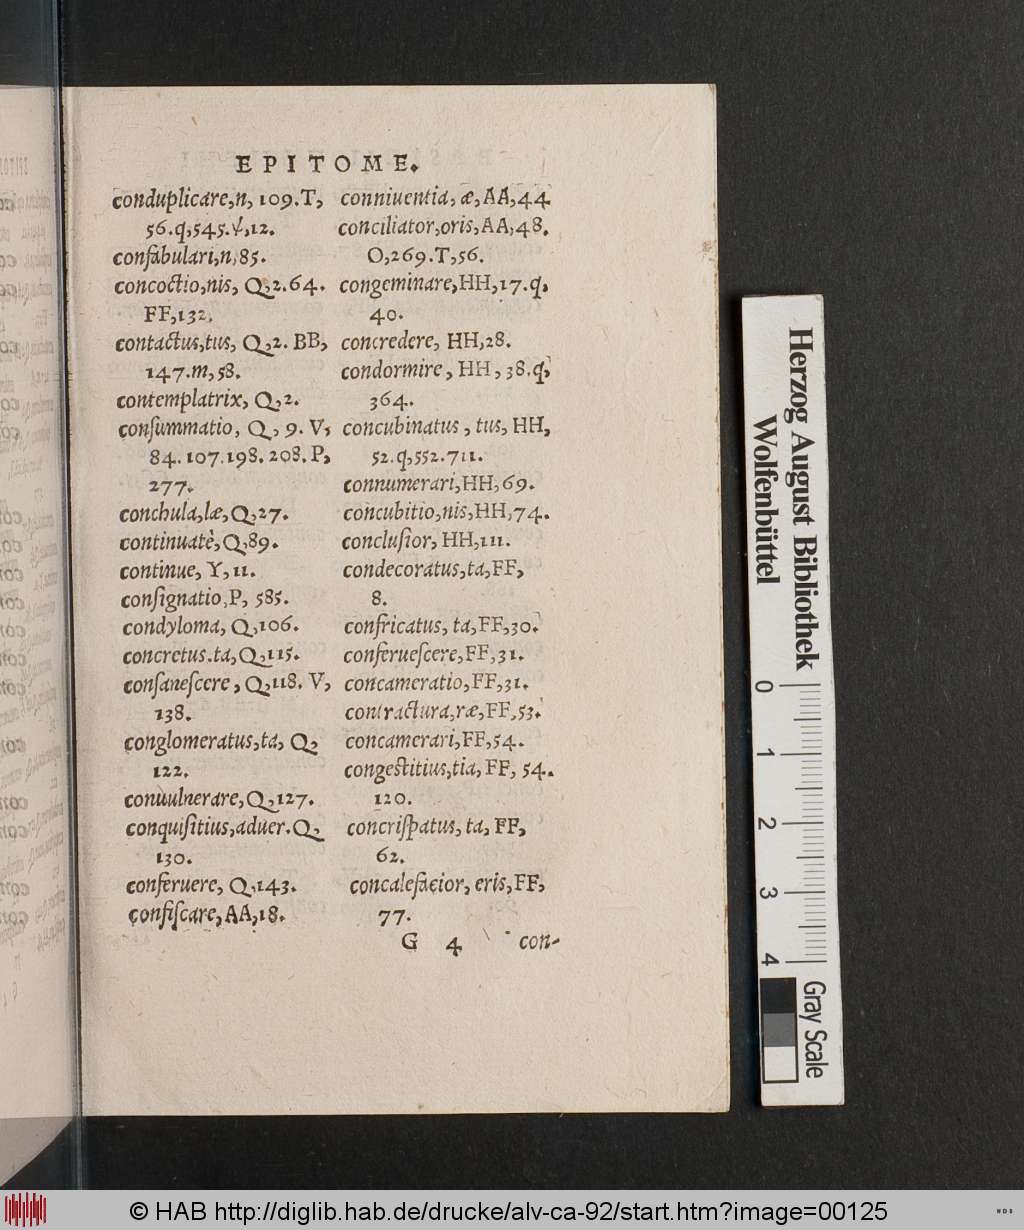 EPITOME.
conduplicare,n, 109.T,
56.q,545.ψ,12.
confabulari,n,85.
concoctio,nis, Q,2.64.
FF,132.
contactus,tus, Q,2. BB,
147.m,58.
contemplatrix, Q,2.
conſummatio, Q, 9. V,
84. 107.198. 208. P,
277.
conchula,læ,Q,27.
continuatè,Q,89.
continue, Y, 11.
conſignatio,P, 585.
condyloma, Q,106.
concretus.ta,Q,115.
conſaneſcere, Q,118. V,
138.
conglomeratus,ta, Q,
122.
conuulnerare,Q,127.
conquiſitius,aduer.Q,
130.
conferuere, Q,143.
confiſcare,AA,18.
conniuentia, æ,AA,44
conciliator,oris,AA,48.
O,269.T,56.
congeminare,HH,17.q,
40.
concredere, HH,28.
condormire, HH, 38.q,
364.
concubinatus, tus, HH,
52.q,552.711.
connumerari,HH,69.
concubitio,nis,HH,74.
concluſior, HH,111.
condecoratus,ta,FF,
8.
confricatus, ta,FF,30.
conferueſcere,FF,31.
concameratio,FF,31.
contractura,ræ,FF,53.
concamerari,FF,54.
congeſtitius,tia, FF, 54.
120.
concriſpatus, ta, FF,
62.
concalefacior, eris,FF,
77.
G 4 con-
Herzog August Bibliothek
Wolfenbüttel
0 1 2 3 4
Gray Scale
© HAB http://diglib.hab.de/drucke/alv-ca-92/start.htm?image=00125
WDB